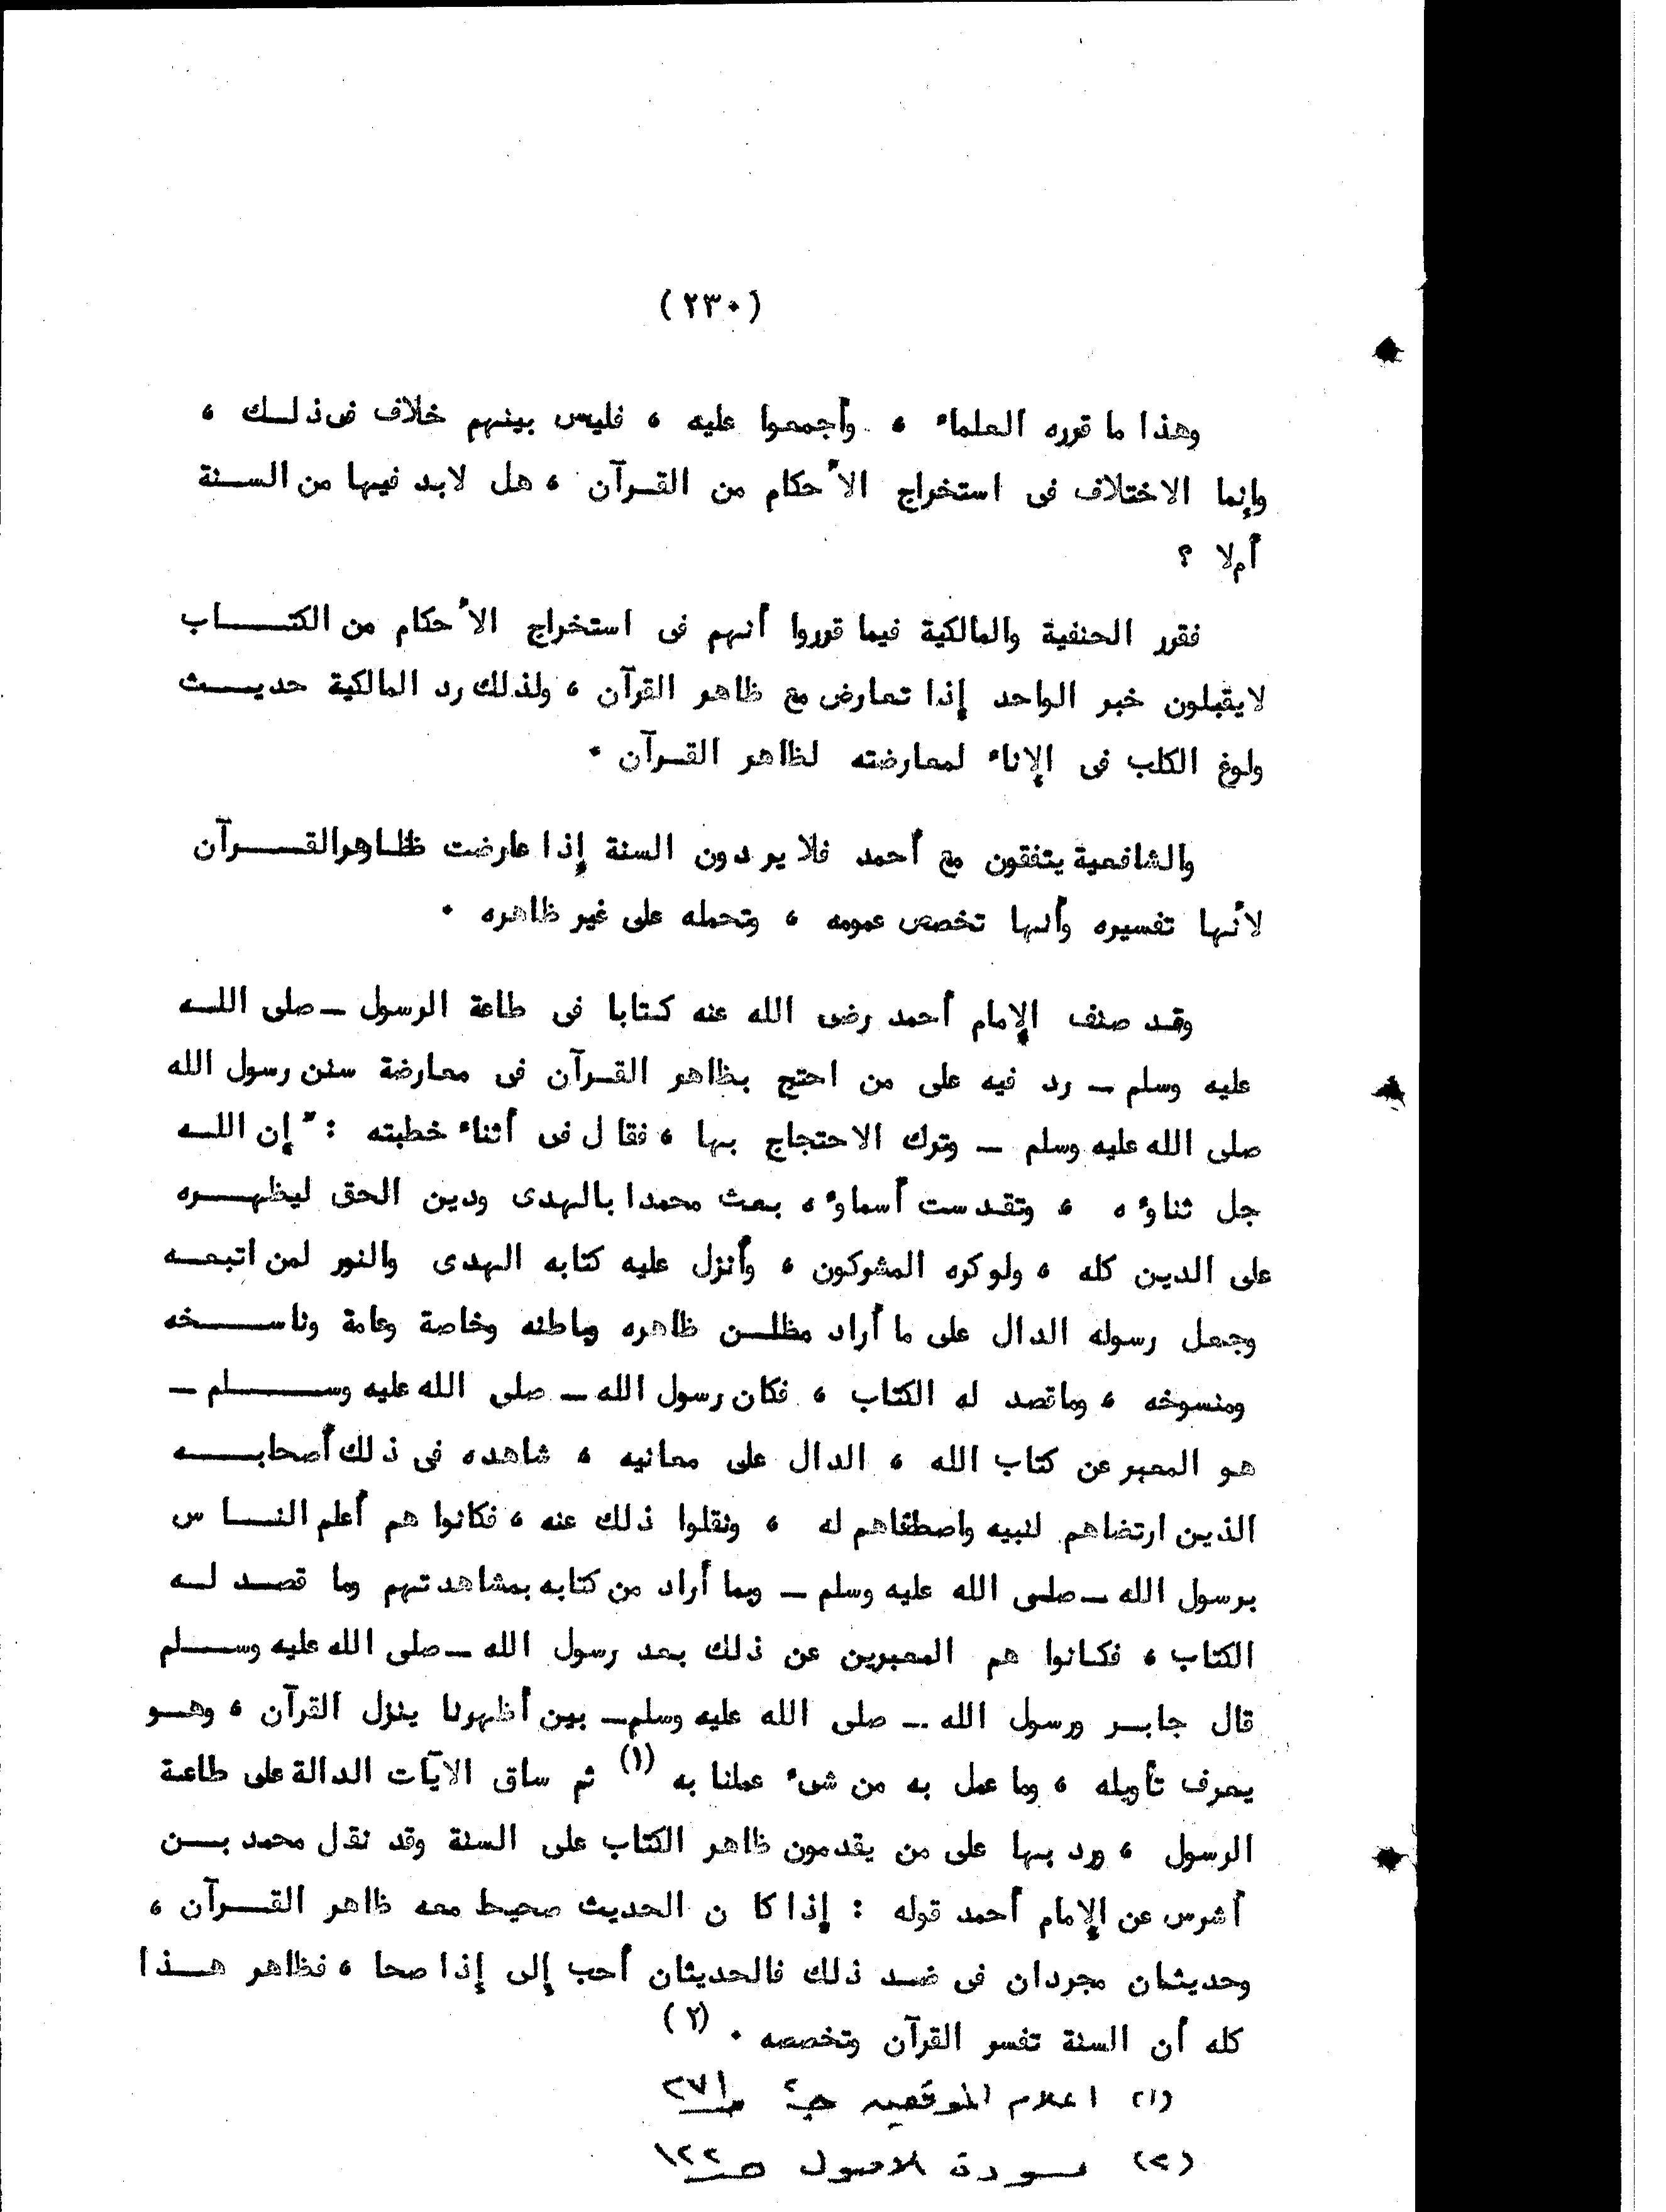 (٢٣٠)
وهذا ما قرره العلماء ، وأجمعوا عليه ، فليس بينهم خلاف فى ذلك ،
وإنما الاختلاف فى استخراج الأحكام من القرآن ، هل لابد فيها من السنة
أم لا ؟
فقرر الحنفية والمالكية فيما قرروا أنهم فى استخراج الأحكام من الكتاب
لايقبلون خبر الواحد إذا تعارض مع ظاهر القرآن ، ولذلك رد المالكية حديث
ولوغ الكلب فى الإناء لمعارضته لظاهر القرآن .
والشافعية يتفقون مع أحمد فلا يردون السنة إذا عارضت ظاهر القرآن
لأنها تفسيره وأنها تخصص عمومه ، وتحمله على غير ظاهره .
وقد صنف الإمام أحمد رضى الله عنه كتابا فى طاعة الرسول ــ صلى الله
عليه وسلم ــ رد فيه على من احتج بظاهر القرآن فى معارضة سنن رسول الله
صلى الله عليه وسلم ــ وترك الاحتجاج بها ، فقال فى أثناء خطبته : " إن الله
جل ثناؤه ، وتقدست أسماؤه بعث محمدا بالهدى ودين الحق ليظهره
على الدين كله ، ولو كره المشركون ، وأنزل عليه كتابه الهدى والنور لمن اتبعه
وجعل رسوله الدال على ما أراد ظاهره وباطنه وخاصة وعامة وناسخه
ومنسوخه ، وماقصد له الكتاب ، فكان رسول الله ــ صلى الله عليه وسلم ــ
هو المعبر عن كتاب الله ، الدال على معانيه ، شاهده فى ذلك أصحابه
الذين ارتضاهم لنبيه واصطفاهم له ، ونقلوا ذلك عنه ، فكانوا هم أعلم الناس
برسول الله ــ صلى الله عليه وسلم ــ وبما أراد من كتابه بمشاهدتهم وما قصد له
الكتاب ، فكانوا هم المعبرين عن ذلك بعد رسول الله ــ صلى الله عليه وسلم
قال جابر ورسول الله ــ صلى الله عليه وسلم ــ بين أظهرنا ينزل القرآن ، وهو
يعرف تأويله ، وما عمل به من شىء عملنا به (١) ثم ساق الآيات الدالة على طاعة
الرسول ، ورد بها على من يقدمون ظاهر الكتاب على السنة وقد نقل محمد بن
أشرس عن الإمام أحمد قوله : إذا كان الحديث صحيط معه ظاهر القرآن ،
وحديثان مجردان فى ضد ذلك فالحديثان أحب إلى إذا صحا ، فظاهر هذا
كله أن السنة تفسر القرآن وتخصصه . (٢)
(١) اعلام الموقعين ج٢ ص٢٧١
(٢) مسودة الاصول ص١٢٢